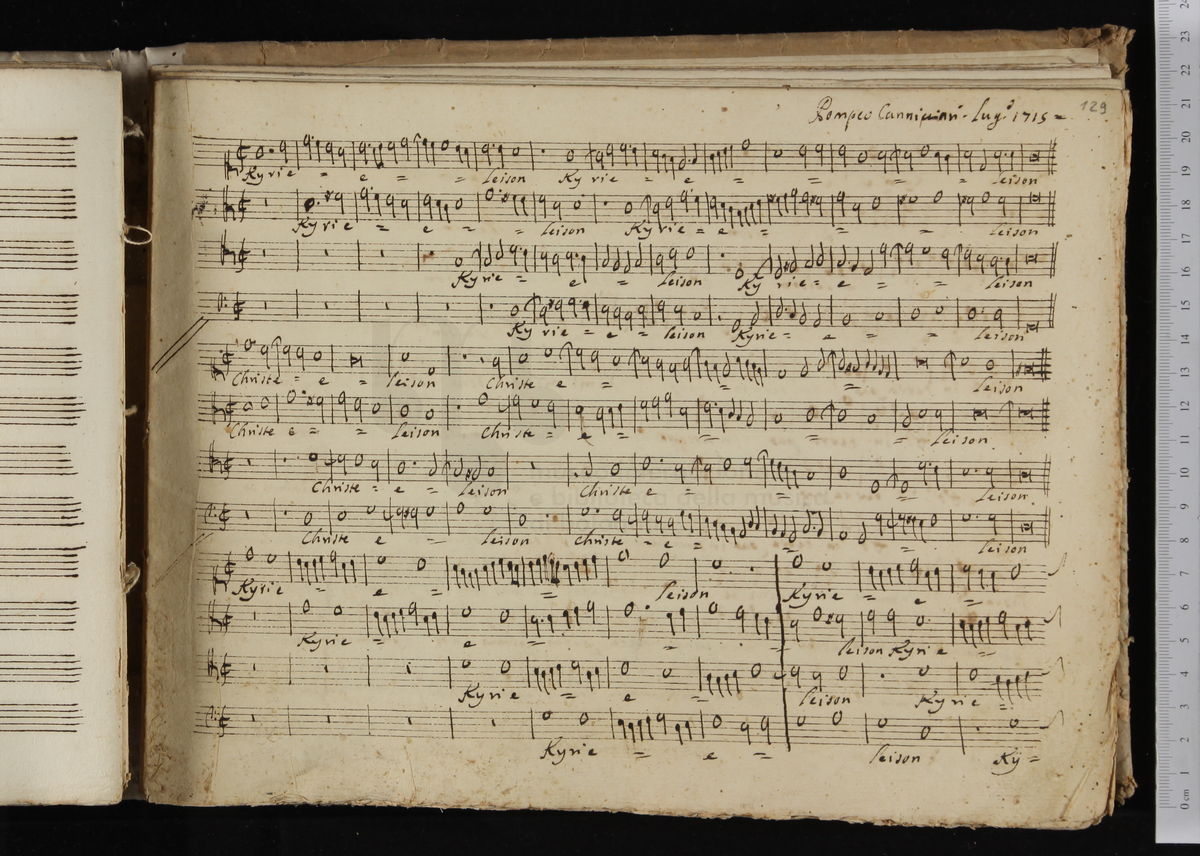 Pompeo Cannicciari. Lug.º 1715 =
129
Kyrie = e = = leison Kyrie = e = = = leison
Kyrie = e = = leison Kyrie = e = = = leison
Kyrie = e = leison Kyrie = e = = leison
Kyrie = e = leison Kyrie = e = = leison
Christe = e = leison Christe e = = = leison
Christe e = = leison Christe = e = = = = leison
Christe = e = leison Christe e = = = leison
Christe e = leison Christe = e = = = leison
Kyrie = e = = leison Kyrie = e =
Kyrie = e = = = leison Kyrie =
Kyrie = e = leison Kyrie =
Kyrie = e = leison Ky =
24
23
22
21
20
19
18
17
16
15
14
13
12
11
10
9
8
7
6
5
4
3
2
1
0 cm